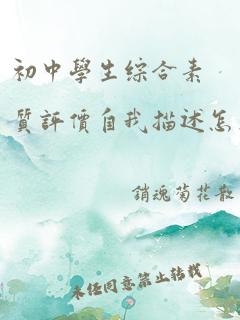 初中學生综合素
質評價自我描述怎
銷魂菊花散
未任同意禁止转载